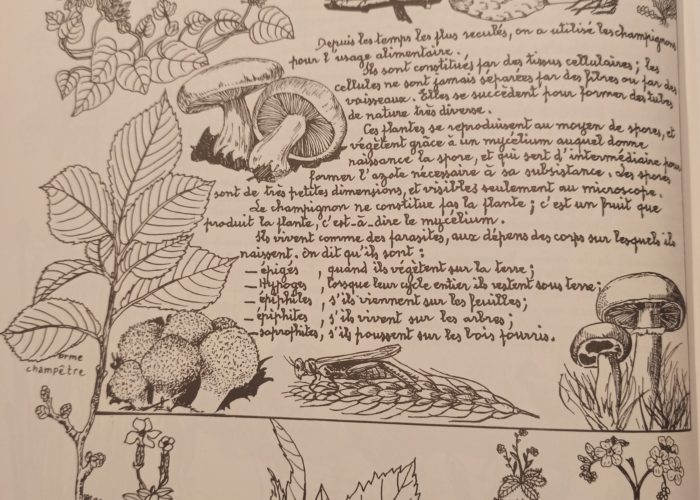 Depuis les temps les plus reculés, on a utilisé les champignons
pour l'usage alimentaire.
Ils sont constitués par des tissus cellulaires ; les
cellules ne sont jamais séparées par des fibres ou par des
vaisseaux. Elles se succèdent pour former des tubes
de nature très diverse.
Ces plantes se reproduisent au moyen de spores, et
végètent grâce à un mycélium auquel donne
naissance la spore, et qui sert d'intermédiaire pour
former l'azote nécessaire à sa subsistance. Les spores
sont de très petites dimensions, et visibles seulement au microscope.
Le champignon ne constitue pas la plante ; c'est un fruit que
produit la plante, c'est-à-dire le mycélium.
Ils vivent comme des parasites, aux dépens des corps sur lesquels ils
naissent. On dit qu'ils sont :
— épigés , quand ils végètent sur la terre ;
— Hypogés , lorsque leur cycle entier ils restent sous terre ;
— épiphites , s'ils viennent sur les feuilles ;
— épiphites , s'ils vivent sur les arbres ;
— saprophites, s'ils poussent sur les bois pourris.
orme
champêtre